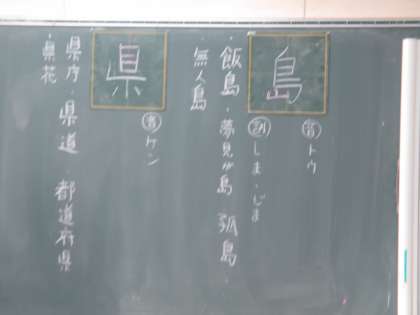 島
音 トウ
訓 しま・じま
・飯島・夢見が島 弧島・
無人島
県
音 ケン
県庁・県道・都道府県
・県花